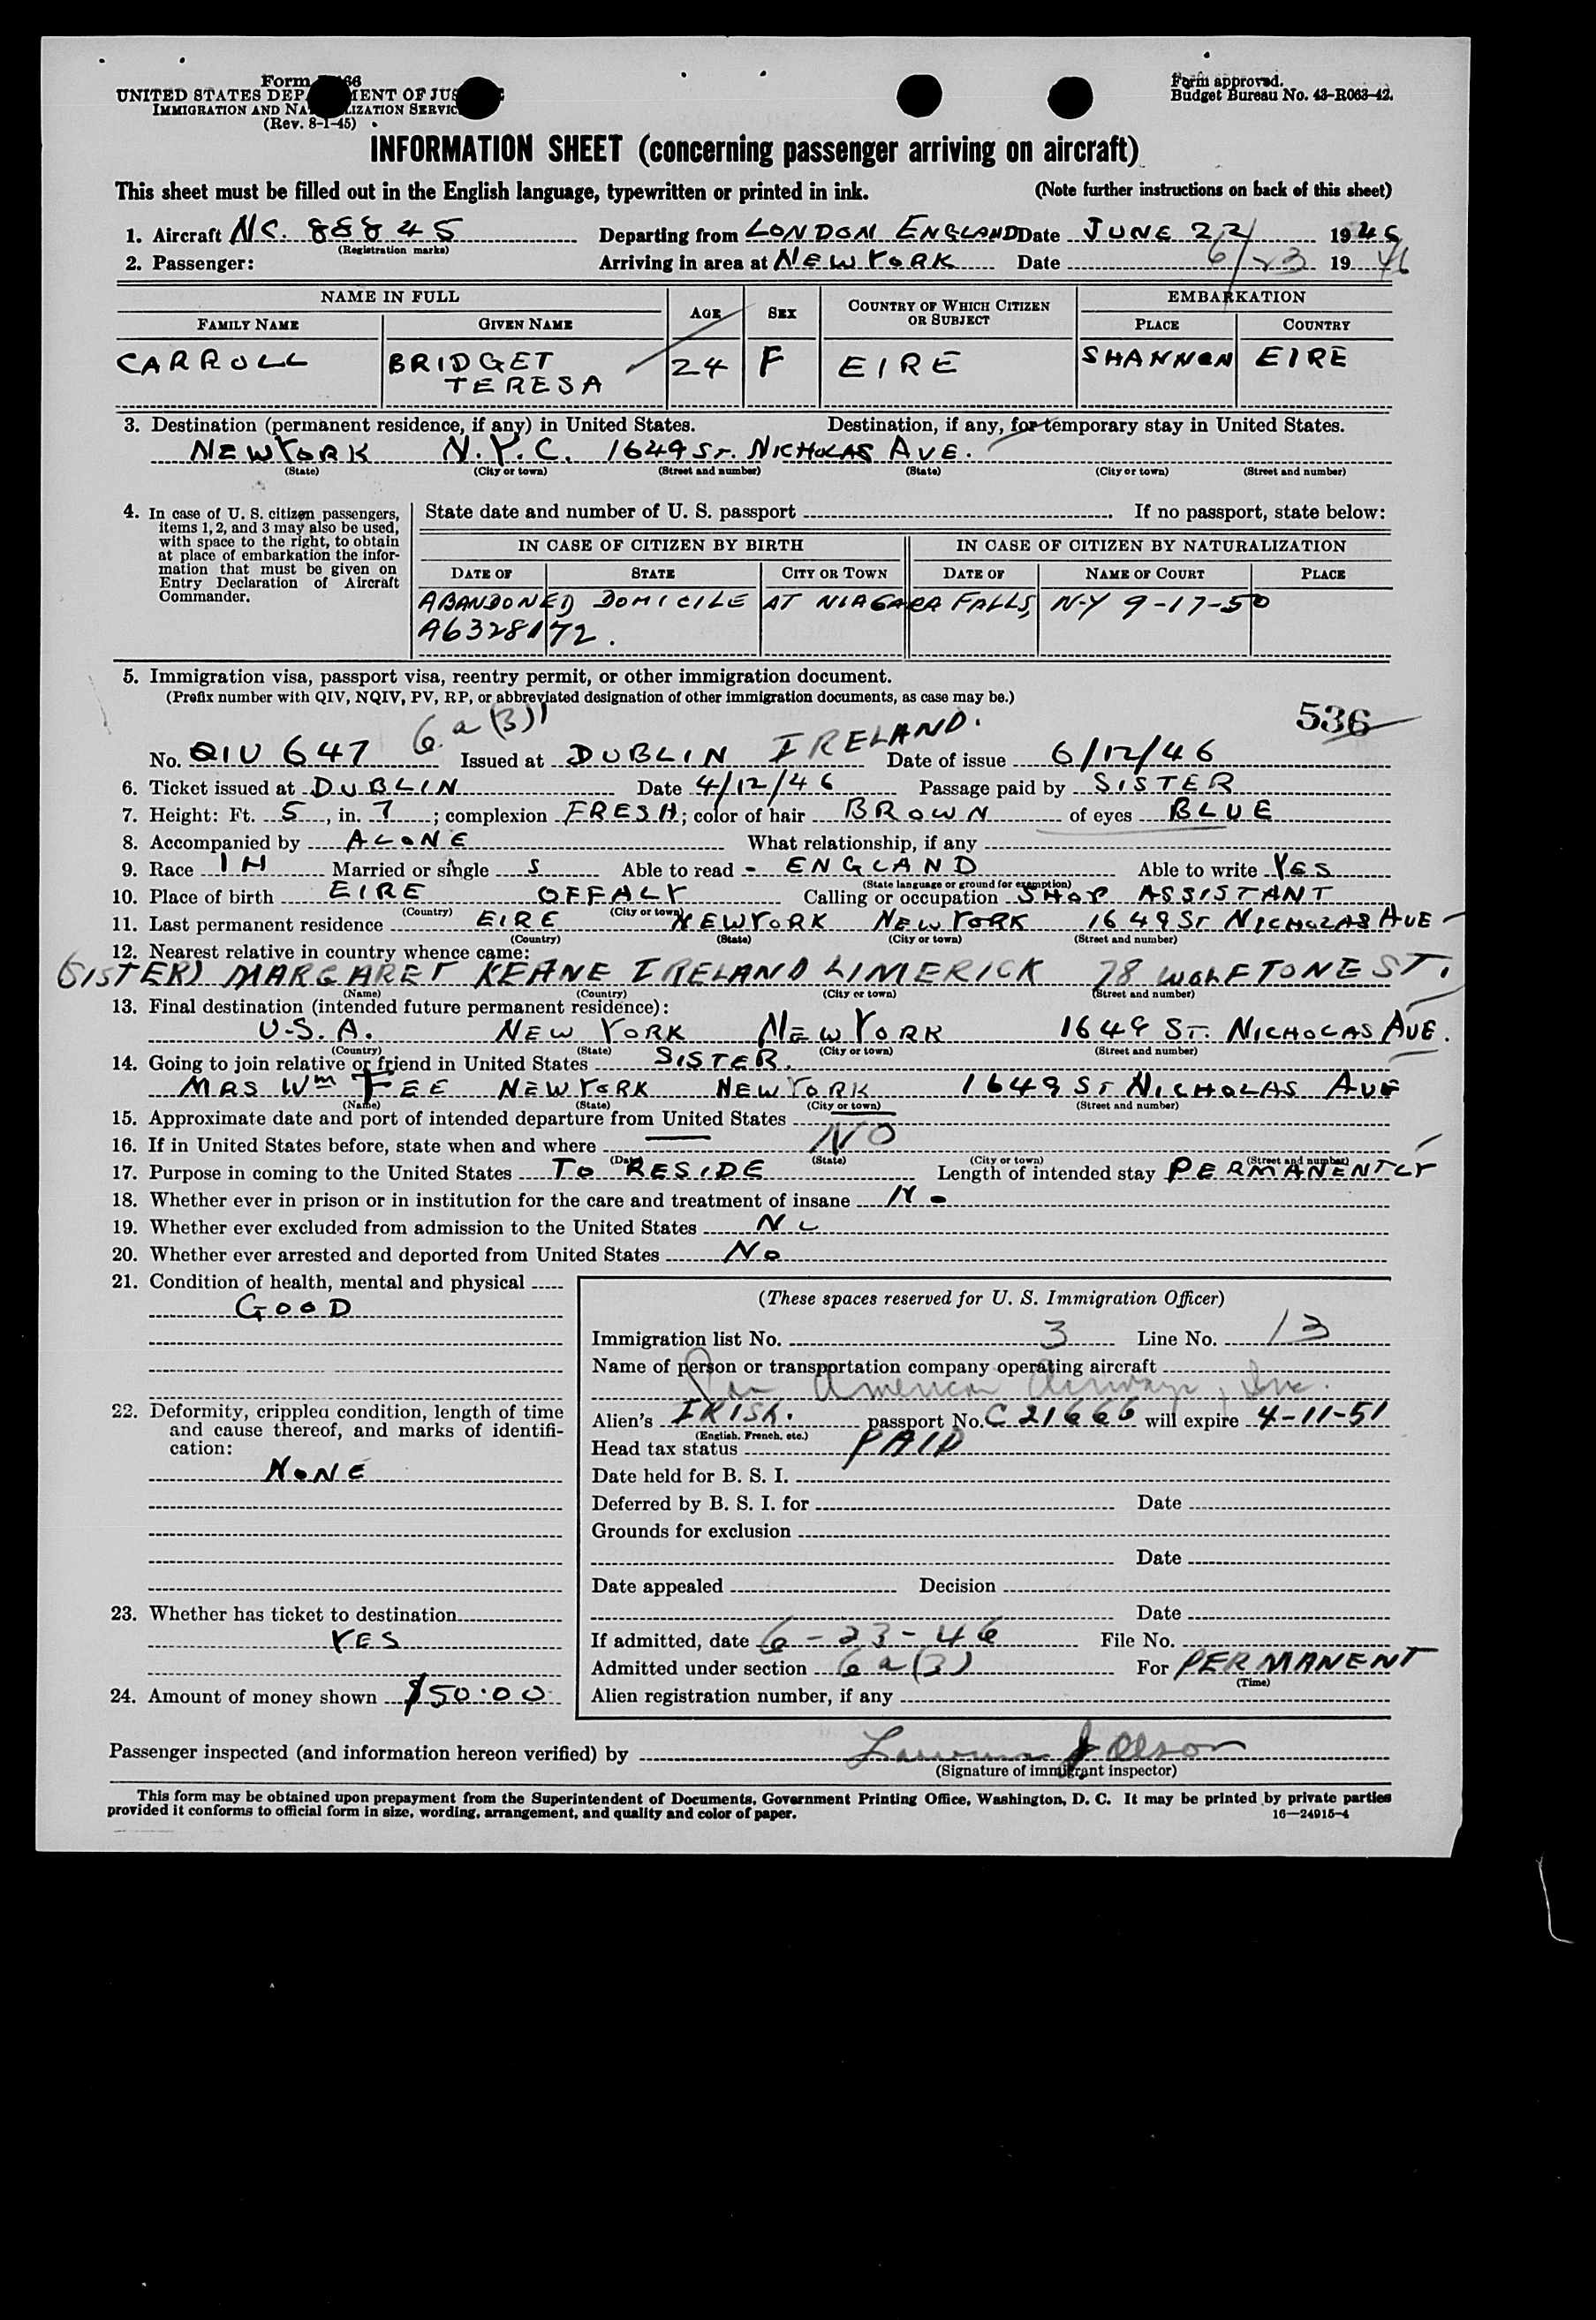 Form
UNITED STATES DEP MENT OF JUS
IMMIGRATION AND NA IZATION SERVIC
(Rev. 8-1-45)
Form approved.
Budget Bureau No. 43-R063-42.
INFORMATION SHEET (concerning passenger arriving on aircraft)
This sheet must be filled out in the English language, typewritten or printed in ink. (Note further instructions on back of this sheet)
1. Aircraft NC. 88845 Departing from LONDON ENGLAND Date JUNE 22 1946
(Registration marks)
2. Passenger: Arriving in area at NEW YORK Date 6/23 19 46
NAME IN FULL AGE SEX COUNTRY OF WHICH CITIZEN OR SUBJECT EMBARKATION
FAMILY NAME GIVEN NAME PLACE COUNTRY
CARROLL BRIDGET TERESA 24 F EIRE SHANNON EIRE
3. Destination (permanent residence, if any) in United States. Destination, if any, for temporary stay in United States.
NEW YORK N.Y.C. 1649 ST. NICHOLAS AVE.
(State) (City or town) (Street and number) (State) (City or town) (Street and number)
4. In case of U. S. citizen passengers,
items 1, 2, and 3 may also be used,
with space to the right, to obtain
at place of embarkation the infor-
mation that must be given on
Entry Declaration of Aircraft
Commander.
State date and number of U. S. passport If no passport, state below:
IN CASE OF CITIZEN BY BIRTH IN CASE OF CITIZEN BY NATURALIZATION
DATE OF STATE CITY OR TOWN DATE OF NAME OF COURT PLACE
ABANDONED DOMICILE AT NIAGARA FALLS, N-Y 9-17-50
A6328172.
5. Immigration visa, passport visa, reentry permit, or other immigration document.
(Prefix number with QIV, NQIV, PV, RP, or abbreviated designation of other immigration documents, as case may be.)
6 a (3) 536
No. QIV 647 Issued at DUBLIN IRELAND. Date of issue 6/12/46
6. Ticket issued at DUBLIN Date 4/12/46 Passage paid by SISTER
7. Height: Ft. 5, in. 7; complexion FRESH; color of hair BROWN of eyes BLUE
8. Accompanied by ALONE What relationship, if any
9. Race IH Married or single S Able to read - ENGLAND Able to write YES
(State language or ground for exemption)
10. Place of birth EIRE OFFALY Calling or occupation SHOP ASSISTANT
(Country) (City or town)
11. Last permanent residence EIRE NEW YORK NEW YORK 1649 ST NICHOLAS AVE
(Country) (State) (City or town) (Street and number)
12. Nearest relative in country whence came:
(SISTER) MARGARET KEANE IRELAND LIMERICK 78 WOLFTONE ST.
(Name) (Country) (City or town) (Street and number)
13. Final destination (intended future permanent residence):
U.S.A. NEW YORK NEW YORK 1649 ST. NICHOLAS AVE.
(Country) (State) (City or town) (Street and number)
14. Going to join relative or friend in United States SISTER.
MRS Wm FEE NEW YORK NEW YORK 1649 ST NICHOLAS AVE
(Name) (State) (City or town) (Street and number)
15. Approximate date and port of intended departure from United States
16. If in United States before, state when and where NO
(Date) (State) (City or town) (Street and number)
17. Purpose in coming to the United States TO RESIDE Length of intended stay PERMANENTLY
18. Whether ever in prison or in institution for the care and treatment of insane NO
19. Whether ever excluded from admission to the United States NO
20. Whether ever arrested and deported from United States NO
21. Condition of health, mental and physical
GOOD
22. Deformity, crippled condition, length of time
and cause thereof, and marks of identifi-
cation:
NONE
23. Whether has ticket to destination
YES
24. Amount of money shown $50.00
(These spaces reserved for U. S. Immigration Officer)
Immigration list No. 3 Line No. 13
Name of person or transportation company operating aircraft
Pan American Airways, Inc.
Alien's IRISH. passport No. C 21666 will expire 4-11-51
(English, French, etc.)
Head tax status PAID
Date held for B. S. I.
Deferred by B. S. I. for Date
Grounds for exclusion
Date
Date appealed Decision
Date
If admitted, date 6-23-46 File No.
Admitted under section 6 a (3) For PERMANENT
(Time)
Alien registration number, if any
Passenger inspected (and information hereon verified) by J Olson
(Signature of immigrant inspector)
This form may be obtained upon prepayment from the Superintendent of Documents, Government Printing Office, Washington, D. C. It may be printed by private parties
provided it conforms to official form in size, wording, arrangement, and quality and color of paper. 16—24915-4